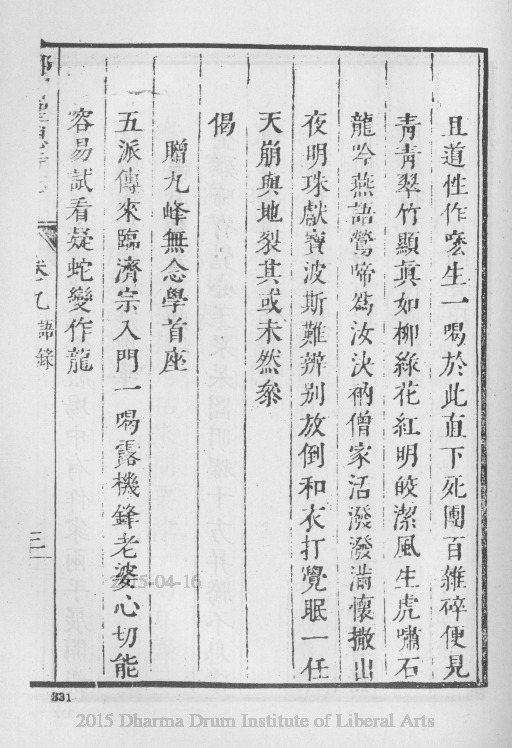 且道性作麽生一喝於此直下死團百雜碎便見
靑靑翠竹顯眞如柳綠花紅明皎潔風生虎嘯石
龍吟燕語鶯啼爲汝決衲僧家活潑潑滿懷撒出
夜明珠獻寶波斯難辨別放倒和衣打覺眠一任
天崩與地裂其或未然叅
偈
贈九峰無念學首座
五派傳來臨濟宗入門一喝露機鋒老婆心切能
容易試看疑蛇變作龍
卷九 語錄
三
2015-04-16
331
2015 Dharma Drum Institute of Liberal Arts